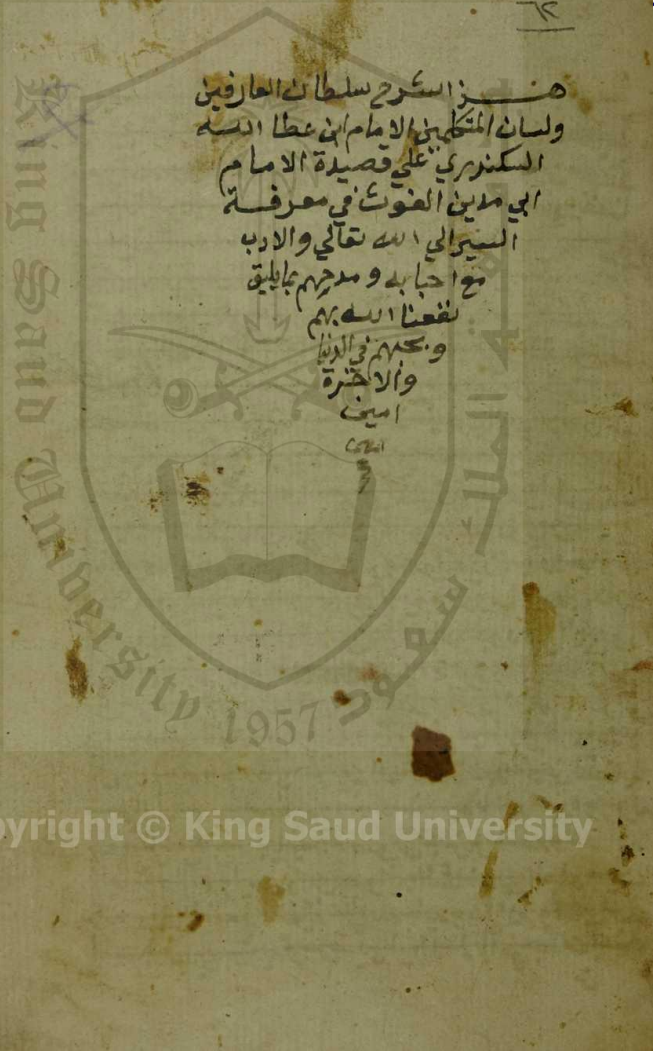 ٦٢
هذا الشرح لسلطان العارفين
ولسان المتكلمين الامام ابن عطا الله
السكندري علي قصيدة الامام
ابي مدين الغوث في معرفة
السير الي الله تعالي والادب
مع احبابه ومدحهم بما يليق
نفعنا الله بهم
وبحبهم في الدنيا
والاخرة
امين
امين
King Saud University
جامعة الملك سعود
1957
pyright © King Saud University